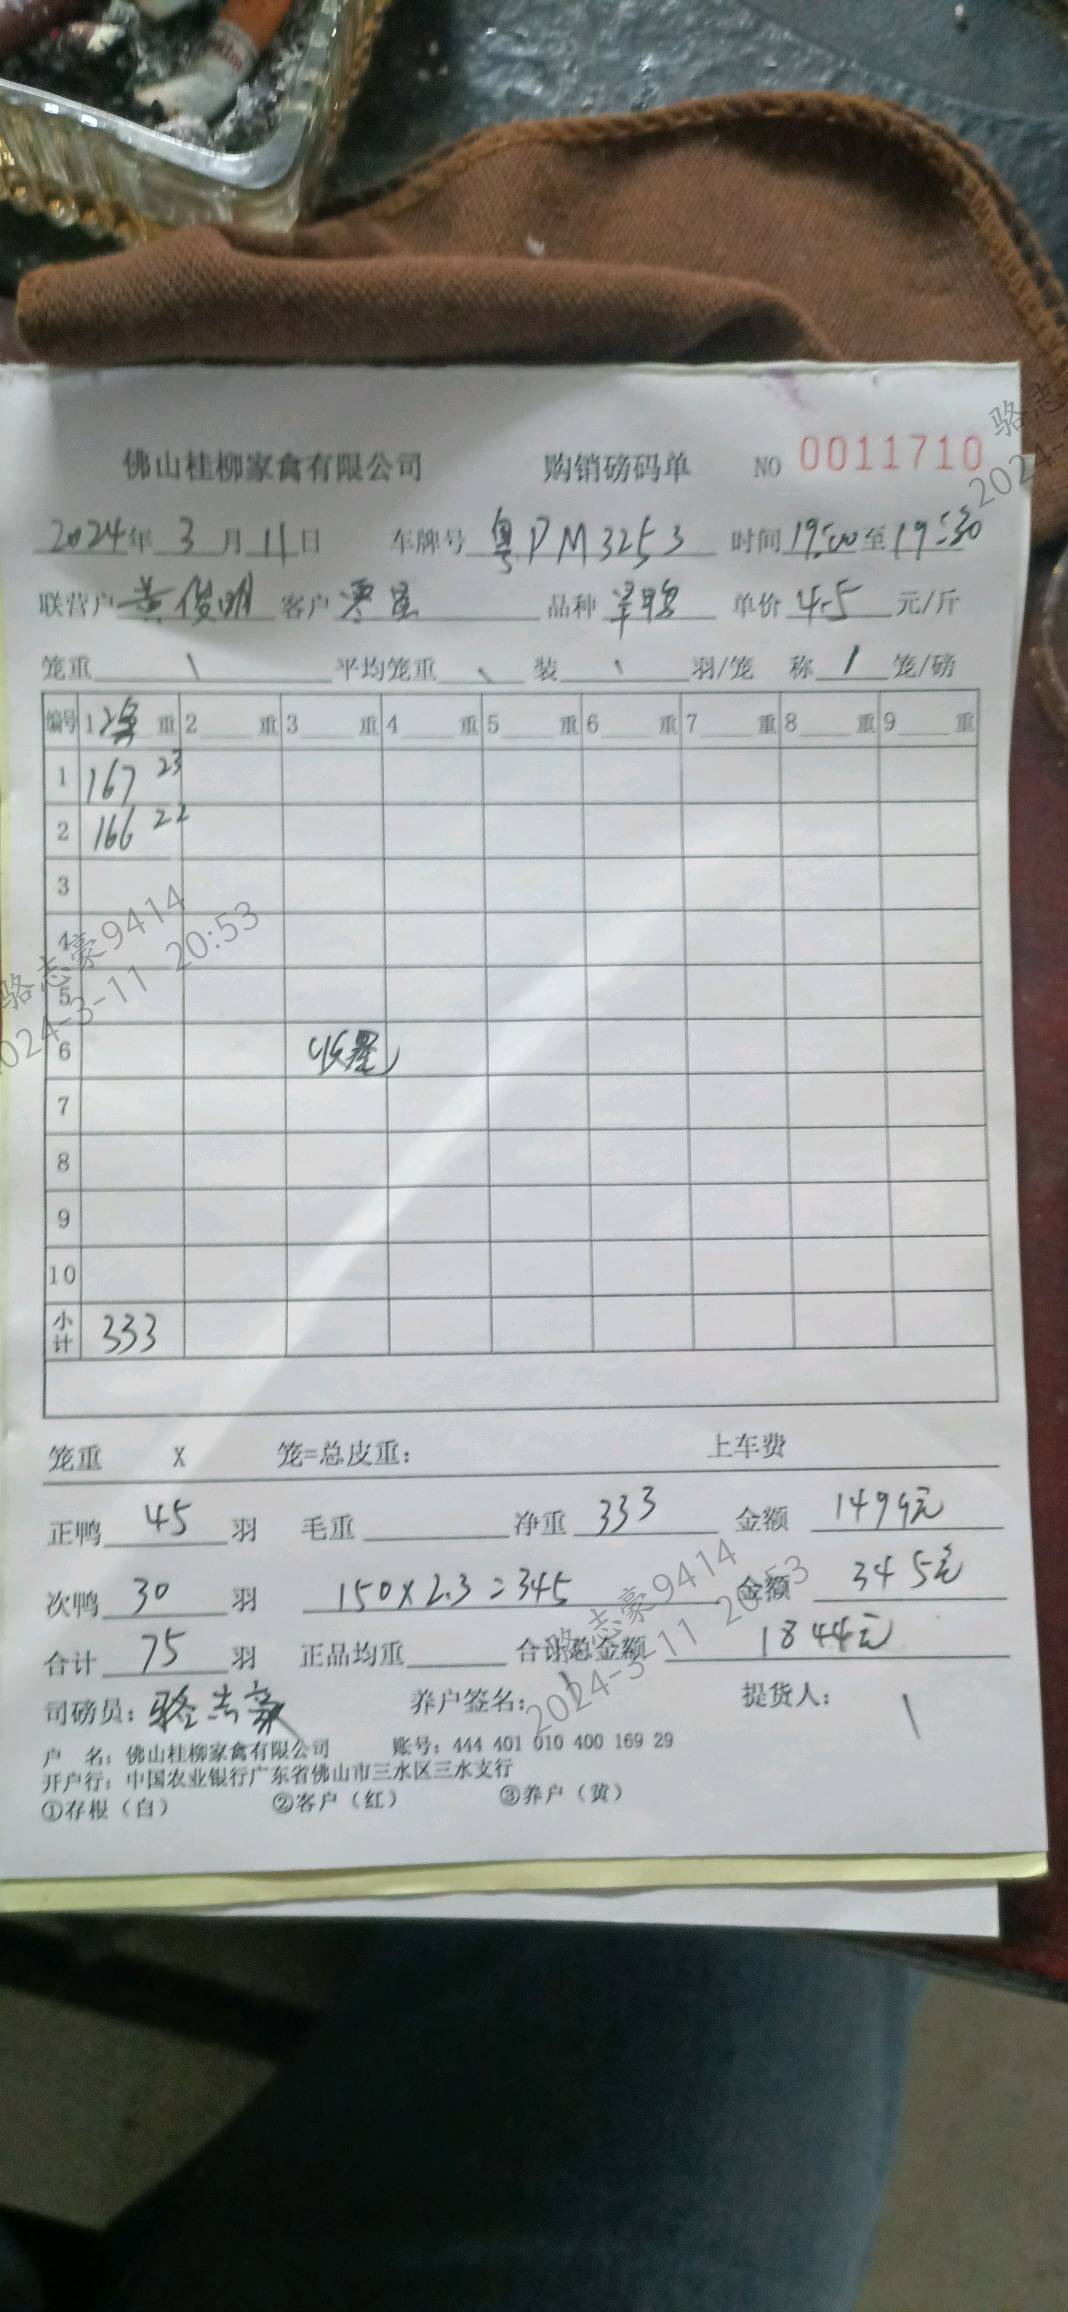 佛山桂柳家禽有限公司 购销磅码单 NO 0011710
2024年3月11日 车牌号 粤PM3253 时间 19:00至19:30
联营户 黄俊明 客户 零星 品种 单价 4.5 元/斤
笼重 \ 平均笼重 \ 装 \ 羽/笼 称 / 笼/磅
编号 1 净 重 2 重 3 重 4 重 5 重 6 重 7 重 8 重 9 重
1 167 23
2 166 22
3
4
5
6
7
8
9
10
小计 333
笼重 X 笼=总皮重： 上车费
正鸭 45 羽 毛重 净重 333 金额 1499元
次鸭 30 羽 150×2.3=345 金额 345元
合计 75 羽 正品均重 合计总金额 1844元
司磅员：骆志豪 养户签名： \ 提货人： \
户 名：佛山桂柳家禽有限公司 账号：444 401 010 400 169 29
开户行：中国农业银行广东省佛山市三水区三水支行
①存根（白） ②客户（红） ③养户（黄）
骆志豪9414
2024-3-11 20:53
骆志豪9414
2024-3-11 20:53
骆志
2024-